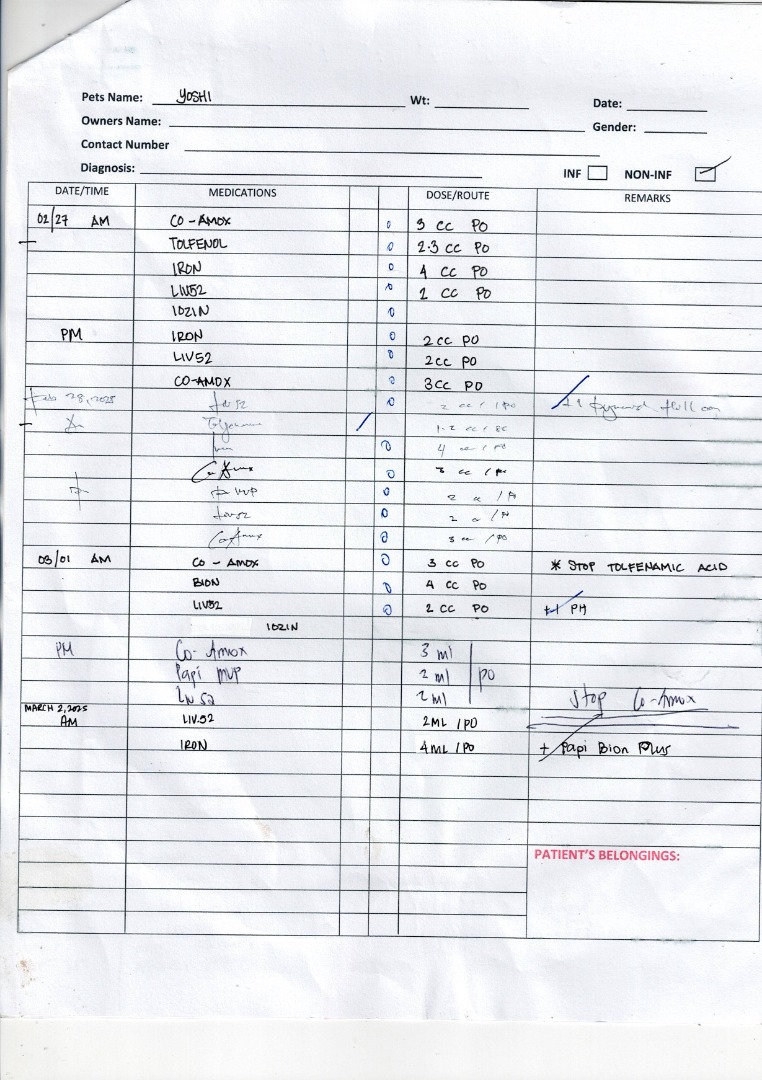 Pets Name: YOSHI Wt: Date:
Owners Name: Gender:
Contact Number
Diagnosis: INF NON-INF
DATE/TIME MEDICATIONS DOSE/ROUTE REMARKS
02/27 AM CO-AMOX 3 CC PO
TOLFENOL 2.3 CC PO
IRON 4 CC PO
LIV52 2 CC PO
IOZIN
PM IRON 2CC PO
LIV52 2CC PO
CO-AMOX 3CC PO
Feb 28, 2025 Liv52 2 cc / PO
1.2 cc / SC
4 cc / PO
3 cc / PO
MVP 2 cc / PO
Liv52 2 cc / PO
3 cc / PO
03/01 AM CO-AMOX 3 CC PO * STOP TOLFENAMIC ACID
BION 4 CC PO
LIV52 2 CC PO +1 PH
IOZIN
PM Co-Amox 3 ml
Papi MVP 2 ml PO
Liv 52 2 ml Stop Co-Amox
MARCH 2, 2025
AM LIV.52 2ML / PO
IRON 4ML / PO + Papi Bion Plus
PATIENT'S BELONGINGS: